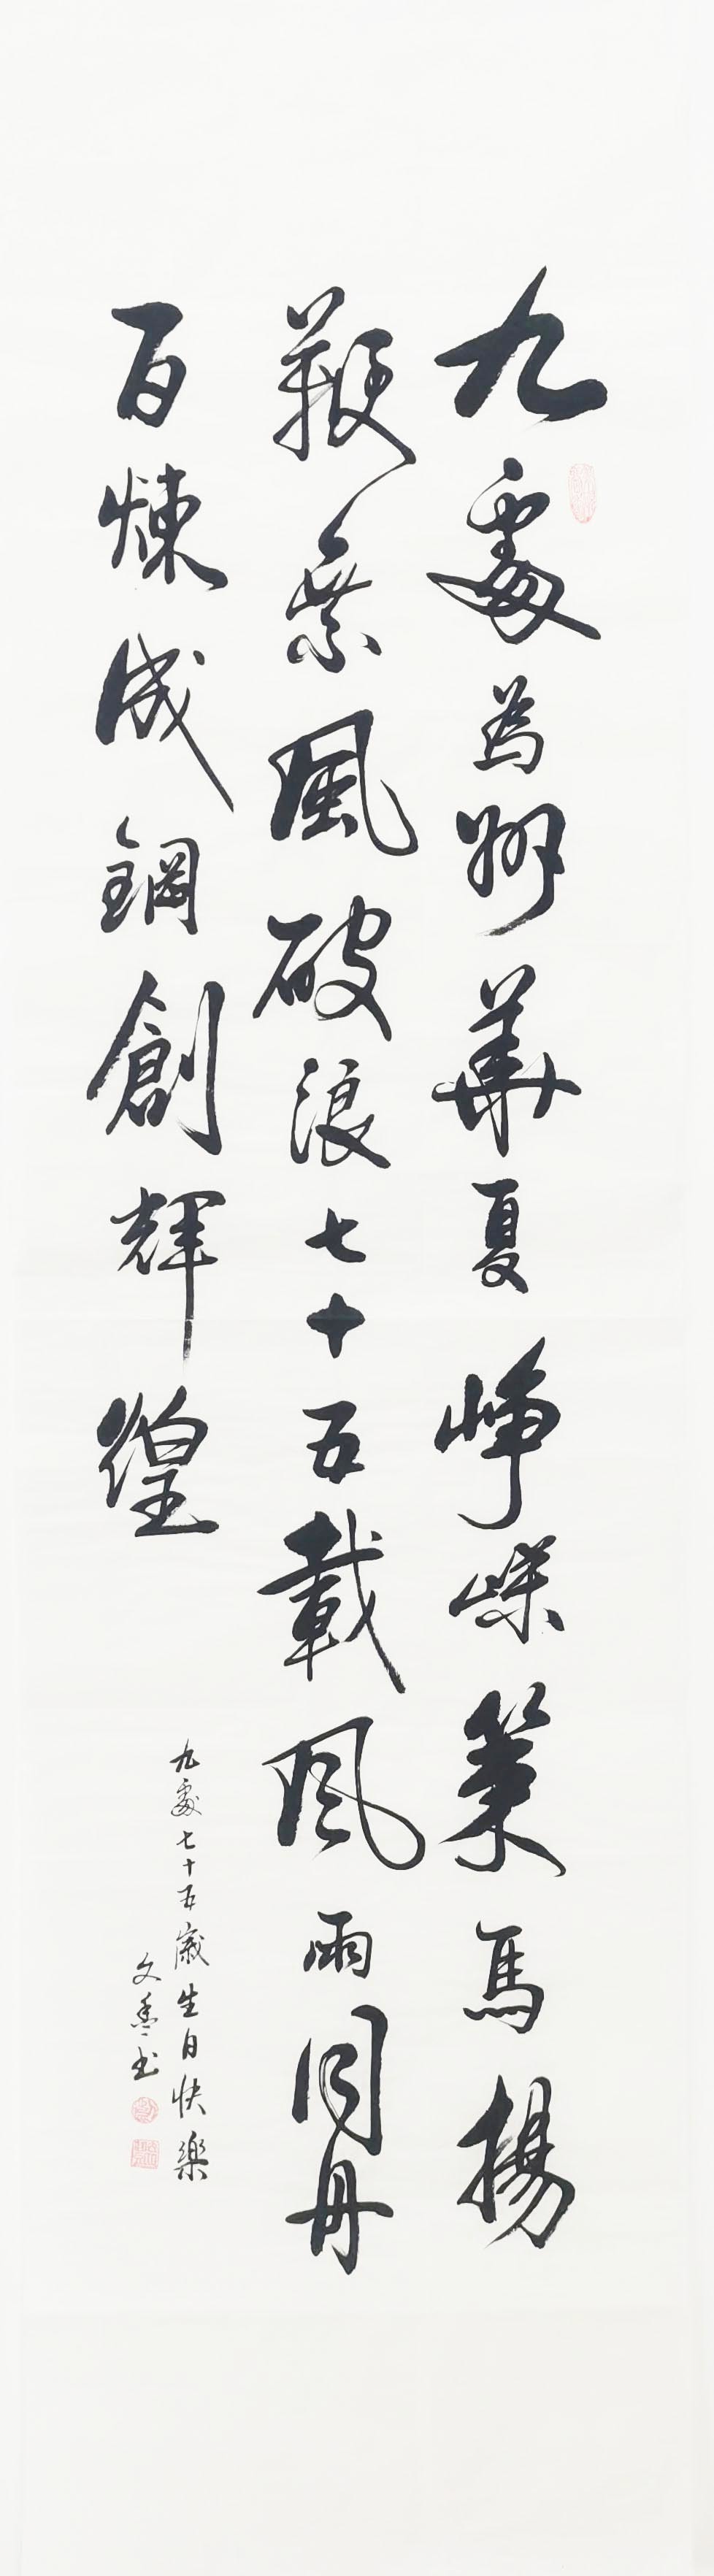 九處為號華夏崢嶸策馬揚
鞭乘風破浪七十五載風雨同舟
百煉成鋼創輝煌
九處七十五歲生日快樂
文 書